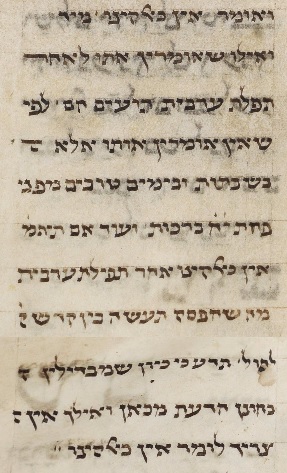 ואומר אין כאלהינו מיד
ואילו שאומרין אותו לאחר
תפלת ערבית תועים הם לפי
שאין אומרין אותו אלא
בשבתות ובימים טובים מפני
פחת י״ח ברכות ועוד אם תאמ׳
אין כאלהינו אחר תפילת ערבית
מה שהפסח תעשה בין קדש
לחול תדע כי כיון שמבדילין
בחונן הדעת מכאן ואילך אין
צריך לומר אין כאלהינו